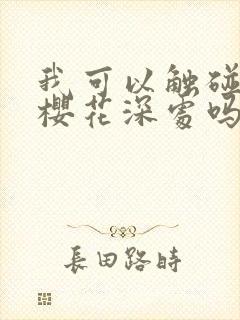 我可以触碰
樱花深处吗
長田路時